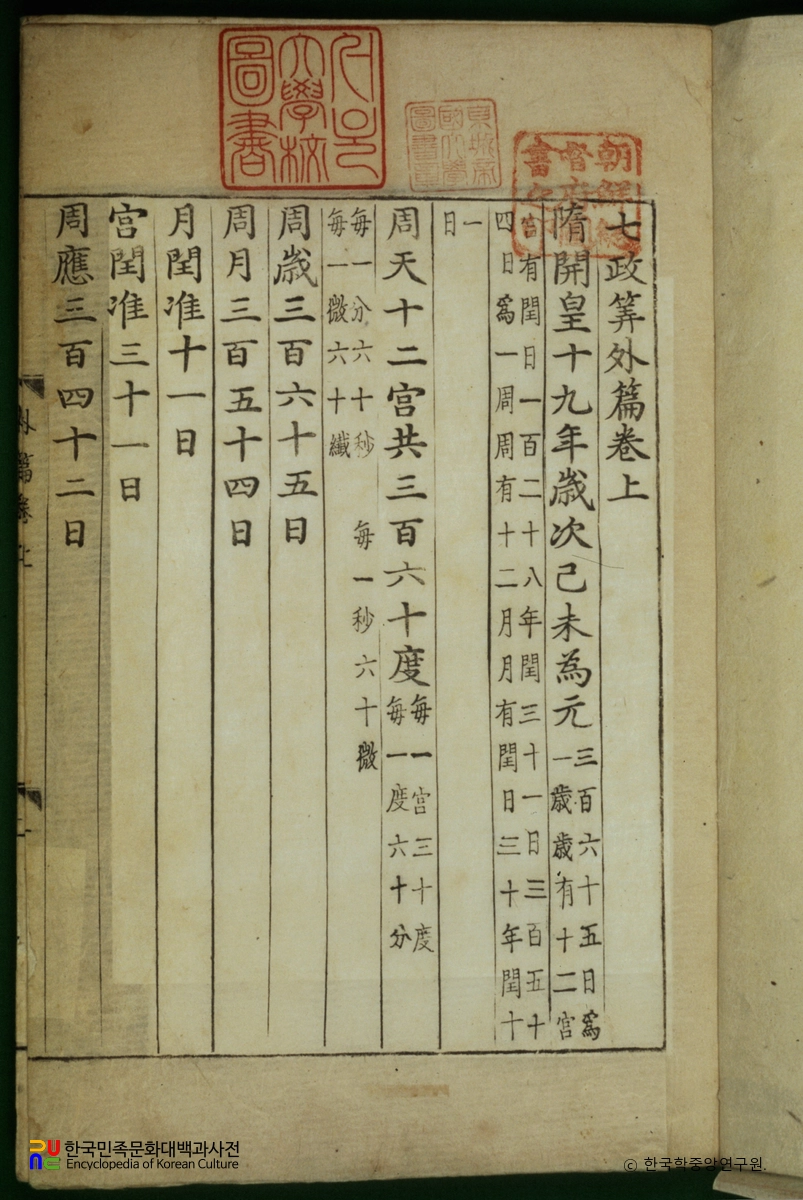 七政筭外篇卷上
隋開皇十九年歲次己未為元
三百六十五日爲
一歲歲有十二宮
宮有閏日一百二十八年閏三十一日三百五十
四日爲一周周有十二月月有閏日三十年閏十
一
日
周天十二宮共三百六十度
每一宮三十度
每一度六十分
每一分六十秒 每一秒六十微
每一微六十纖
周歲三百六十五日
周月三百五十四日
月閏准十一日
宮閏准三十一日
周應三百四十二日
外篇卷上
서울大學校圖書
한국민족문화대백과사전
Encyclopedia of Korean Culture
ⓒ 한국학중앙연구원.